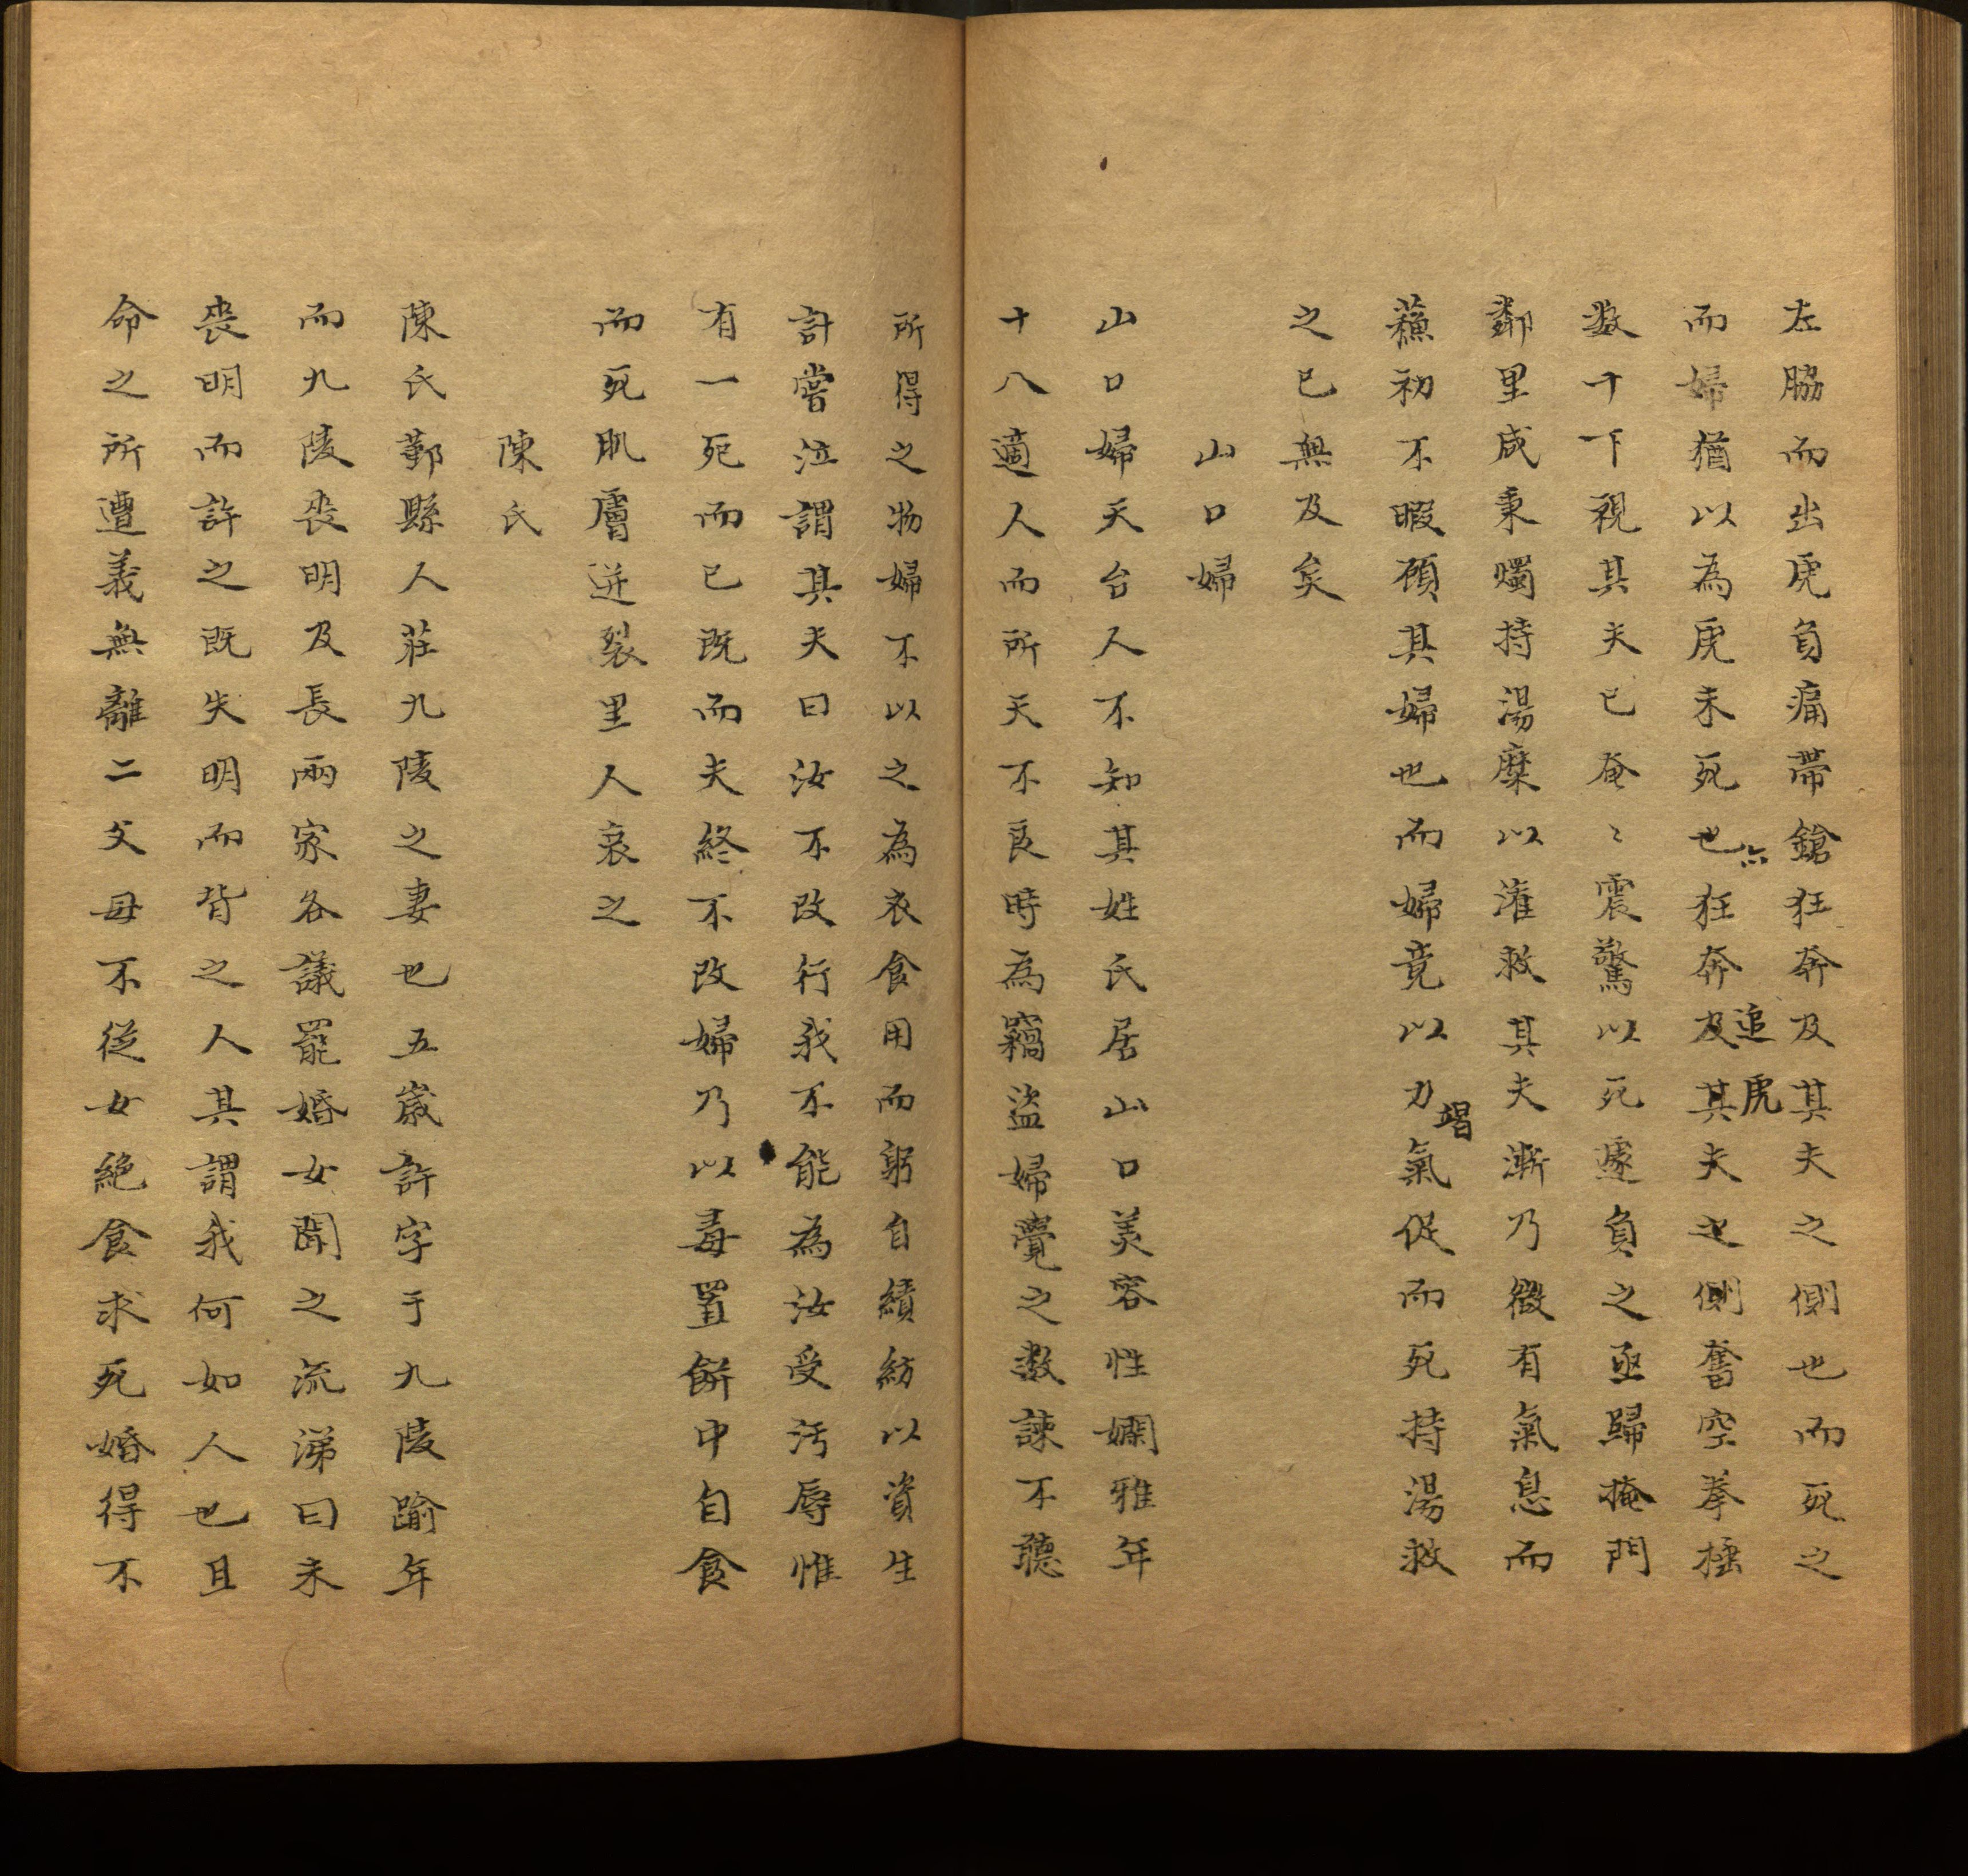 左脇而出虎負痛帶鎗狂奔及其夫之側也而死之
而婦猶以為虎未死也亦狂奔追及虎其夫之側奮空拳捶
数十下視其夫已奄〻震驚以死遽負之亟歸掩門
鄰里咸秉燭持湯糜以灌救其夫漸乃微有氣息而
蘓初不暇顧其婦也而婦竟以力竭氣促而死持湯救
之已無及矣
山口婦
山口婦天台人不知其姓氏居山口美容性嫻雅年
十八適人而所天不良時為竊盜婦覺之数諫不聽
所得之物婦不以之為衣食用而躬自績紡以資生
計嘗泣謂其夫曰汝不改行我不能為汝受污辱惟
有一死而已既而夫終不改婦乃以毒置餅中自食
而死肌膚迸裂里人哀之
陳氏
陳氏鄞縣人莊九陵之妻也五歲許字于九陵踰年
而九陵喪明及長兩家各議罷婚女聞之流涕曰未
喪明而許之既失明而背之人其謂我何如人也且
命之所遭義無離二父母不從女絕食求死婚得不